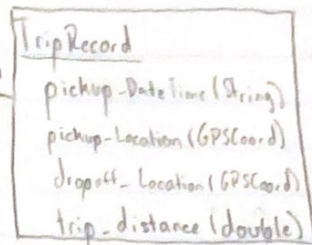 TripRecord
pickup_DateTime (String)
pickup_Location (GPSCoord)
dropoff_Location (GPSCoord)
trip_distance (double)